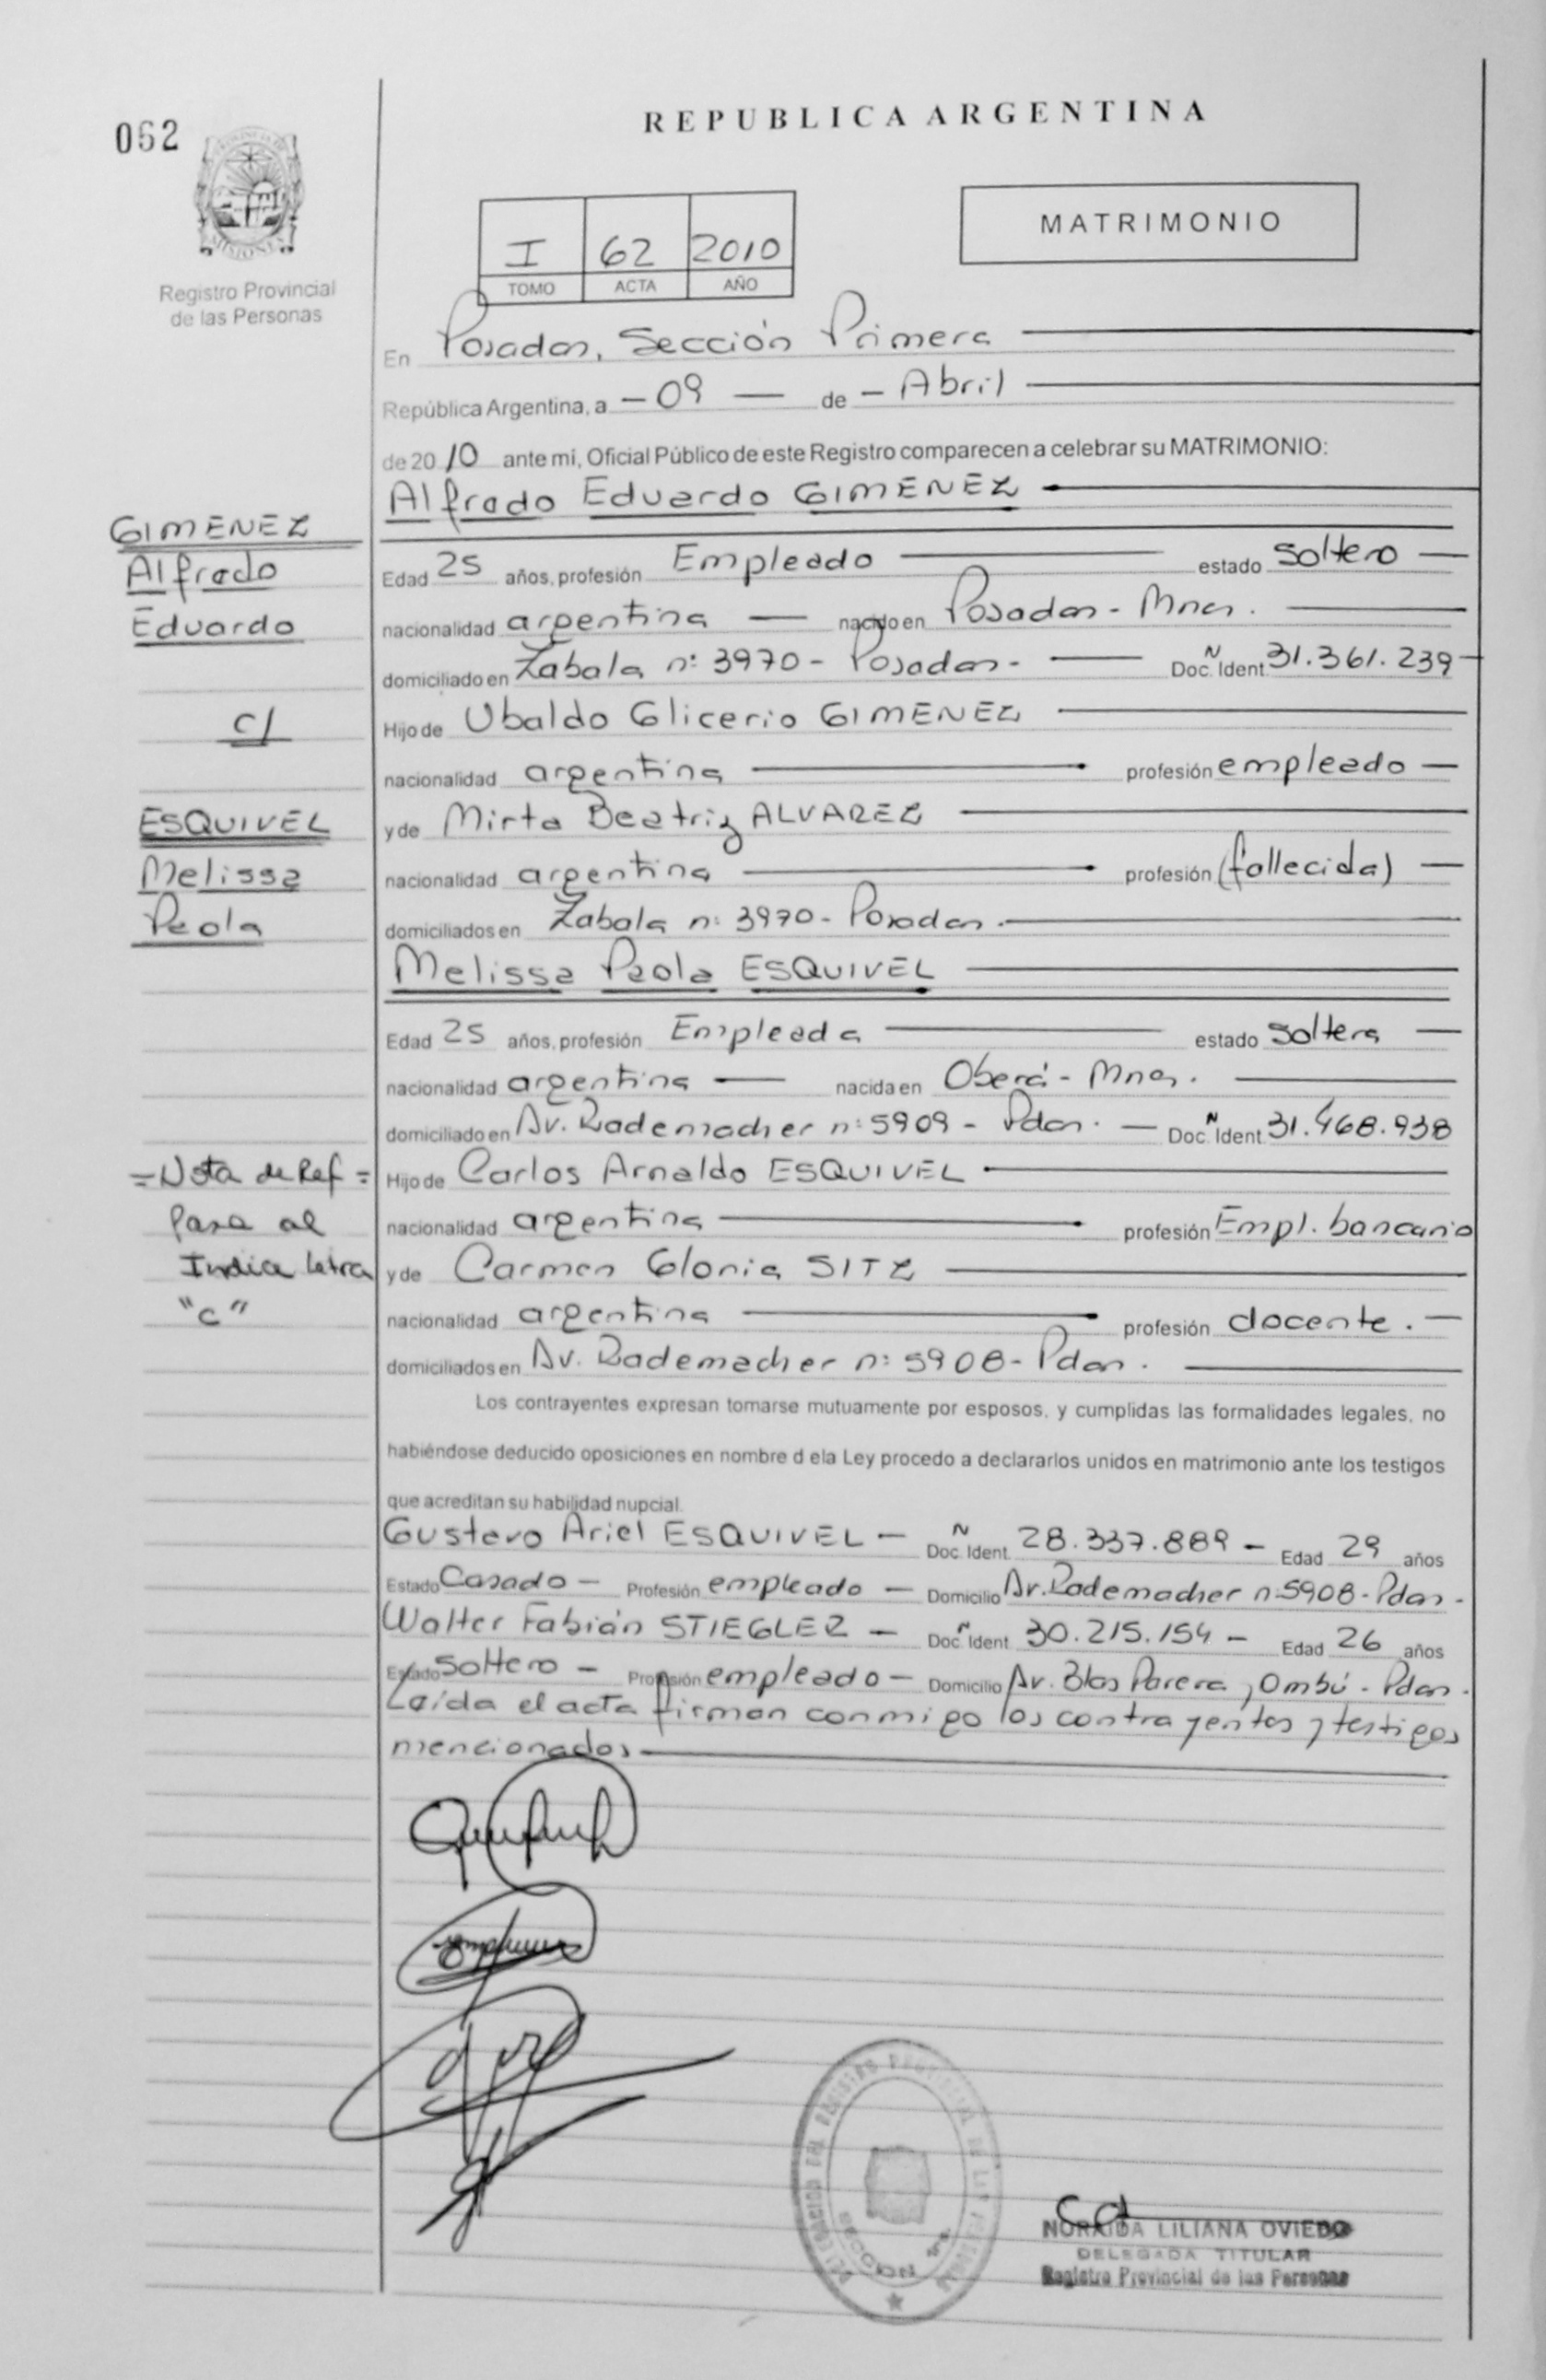 062
REPUBLICA ARGENTINA
MATRIMONIO
I 62 2010
TOMO ACTA AÑO
Registro Provincial
de las Personas
En Posadas, Sección Primera
República Argentina, a - 09 — de - Abril
de 2010 ante mi, Oficial Público de este Registro comparecen a celebrar su MATRIMONIO:
Alfredo Eduardo GIMENEZ
GIMENEZ
Alfredo
Eduardo
c/
ESQUIVEL
Melissa
Paola
Edad 25 años, profesión Empleado estado soltero
nacionalidad argentina — nacido en Posadas - Mnes.
domiciliado en Zabala n: 3970 - Posadas - Doc. Ident. N 31.361.239
Hijo de Ubaldo Glicerio GIMENEZ
nacionalidad argentina profesión empleado
y de Mirta Beatriz ALVAREZ
nacionalidad argentina profesión (fallecida)
domiciliados en Zabala n: 3970 - Posadas.
Melissa Paola ESQUIVEL
Edad 25 años, profesión Empleada estado soltera
nacionalidad argentina — nacida en Oberá - Mnes.
domiciliado en Av. Rademacher n: 5909 - Pdas. — Doc. Ident. N 31.468.938
= Nota de Ref =
Pasa al
Indice letra
"C"
Hijo de Carlos Arnaldo ESQUIVEL
nacionalidad argentina profesión Empl. bancario
y de Carmen Gloria SITZ
nacionalidad argentina profesión docente.
domiciliados en Av. Rademacher n: 5908 - Pdas.
Los contrayentes expresan tomarse mutuamente por esposos, y cumplidas las formalidades legales, no
habiéndose deducido oposiciones en nombre d ela Ley procedo a declararlos unidos en matrimonio ante los testigos
que acreditan su habilidad nupcial.
Gustavo Ariel ESQUIVEL — Doc. Ident. N 28.337.889 - Edad 29 años
Estado Casado - Profesión empleado - Domicilio Av. Rademacher n: 5908 - Pdas -
Walter Fabián STIEGLER — Doc. Ident. N 30.215.154 - Edad 26 años
Estado Soltero - Profesión empleado - Domicilio Av. Blas Parera y Ombú - Pdas.
Leída el acta firman conmigo los contrayentes y testigos
mencionados
NORAIDA LILIANA OVIEDO
DELEGADA TITULAR
Registro Provincial de las Personas